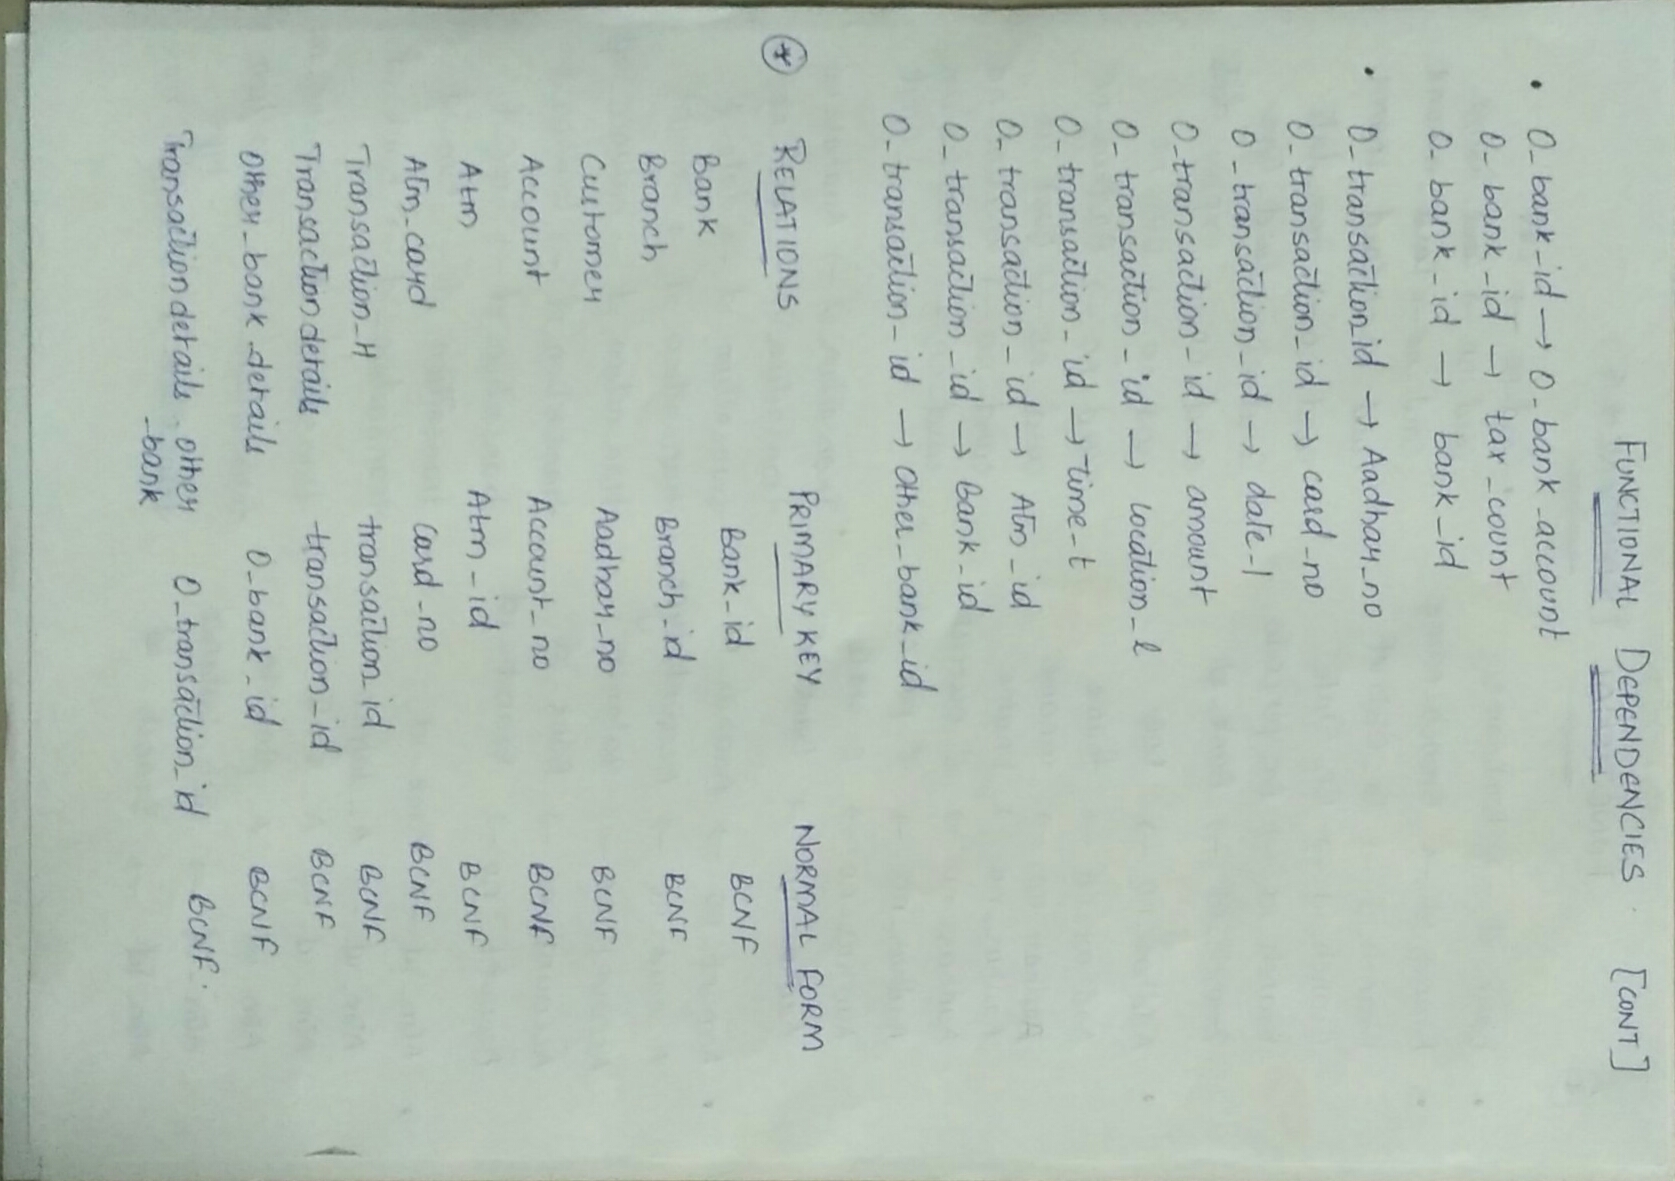 FUNCTIONAL DEPENDENCIES [CONT]
• O_bank_id → O_bank_account
O_bank_id → tax_count
O_bank_id → bank_id
• O_transaction_id → Aadhar_no
O_transaction_id → card_no
O_transaction_id → date_l
O_transaction_id → amount
O_transaction_id → location_l
O_transaction_id → Time_t
O_transaction_id → Atm_id
O_transaction_id → Bank_id
O_transaction_id → Other_bank_id
* RELATIONS PRIMARY KEY NORMAL FORM
Bank Bank_id BCNF
Branch Branch_id BCNF
Customer Aadhar_no BCNF
Account Account_no BCNF
Atm Atm_id BCNF
Atm_card Card_no BCNF
Transaction_H transaction_id BCNF
Transaction details transaction_id BCNF
Other_bank_details O_bank_id BCNF
Transaction details_other O_transaction_id BCNF.
_bank